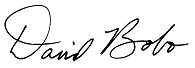 David Bobo